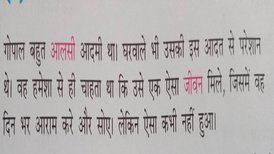 गोपाल बहुत आलसी आदमी था। घरवाले भी उसकी इस आदत से परेशान
थे। वह हमेशा से ही चाहता था कि उसे एक ऐसा जीवन मिले, जिसमें वह
दिन भर आराम करे और सोए। लेकिन ऐसा कभी नहीं हुआ।